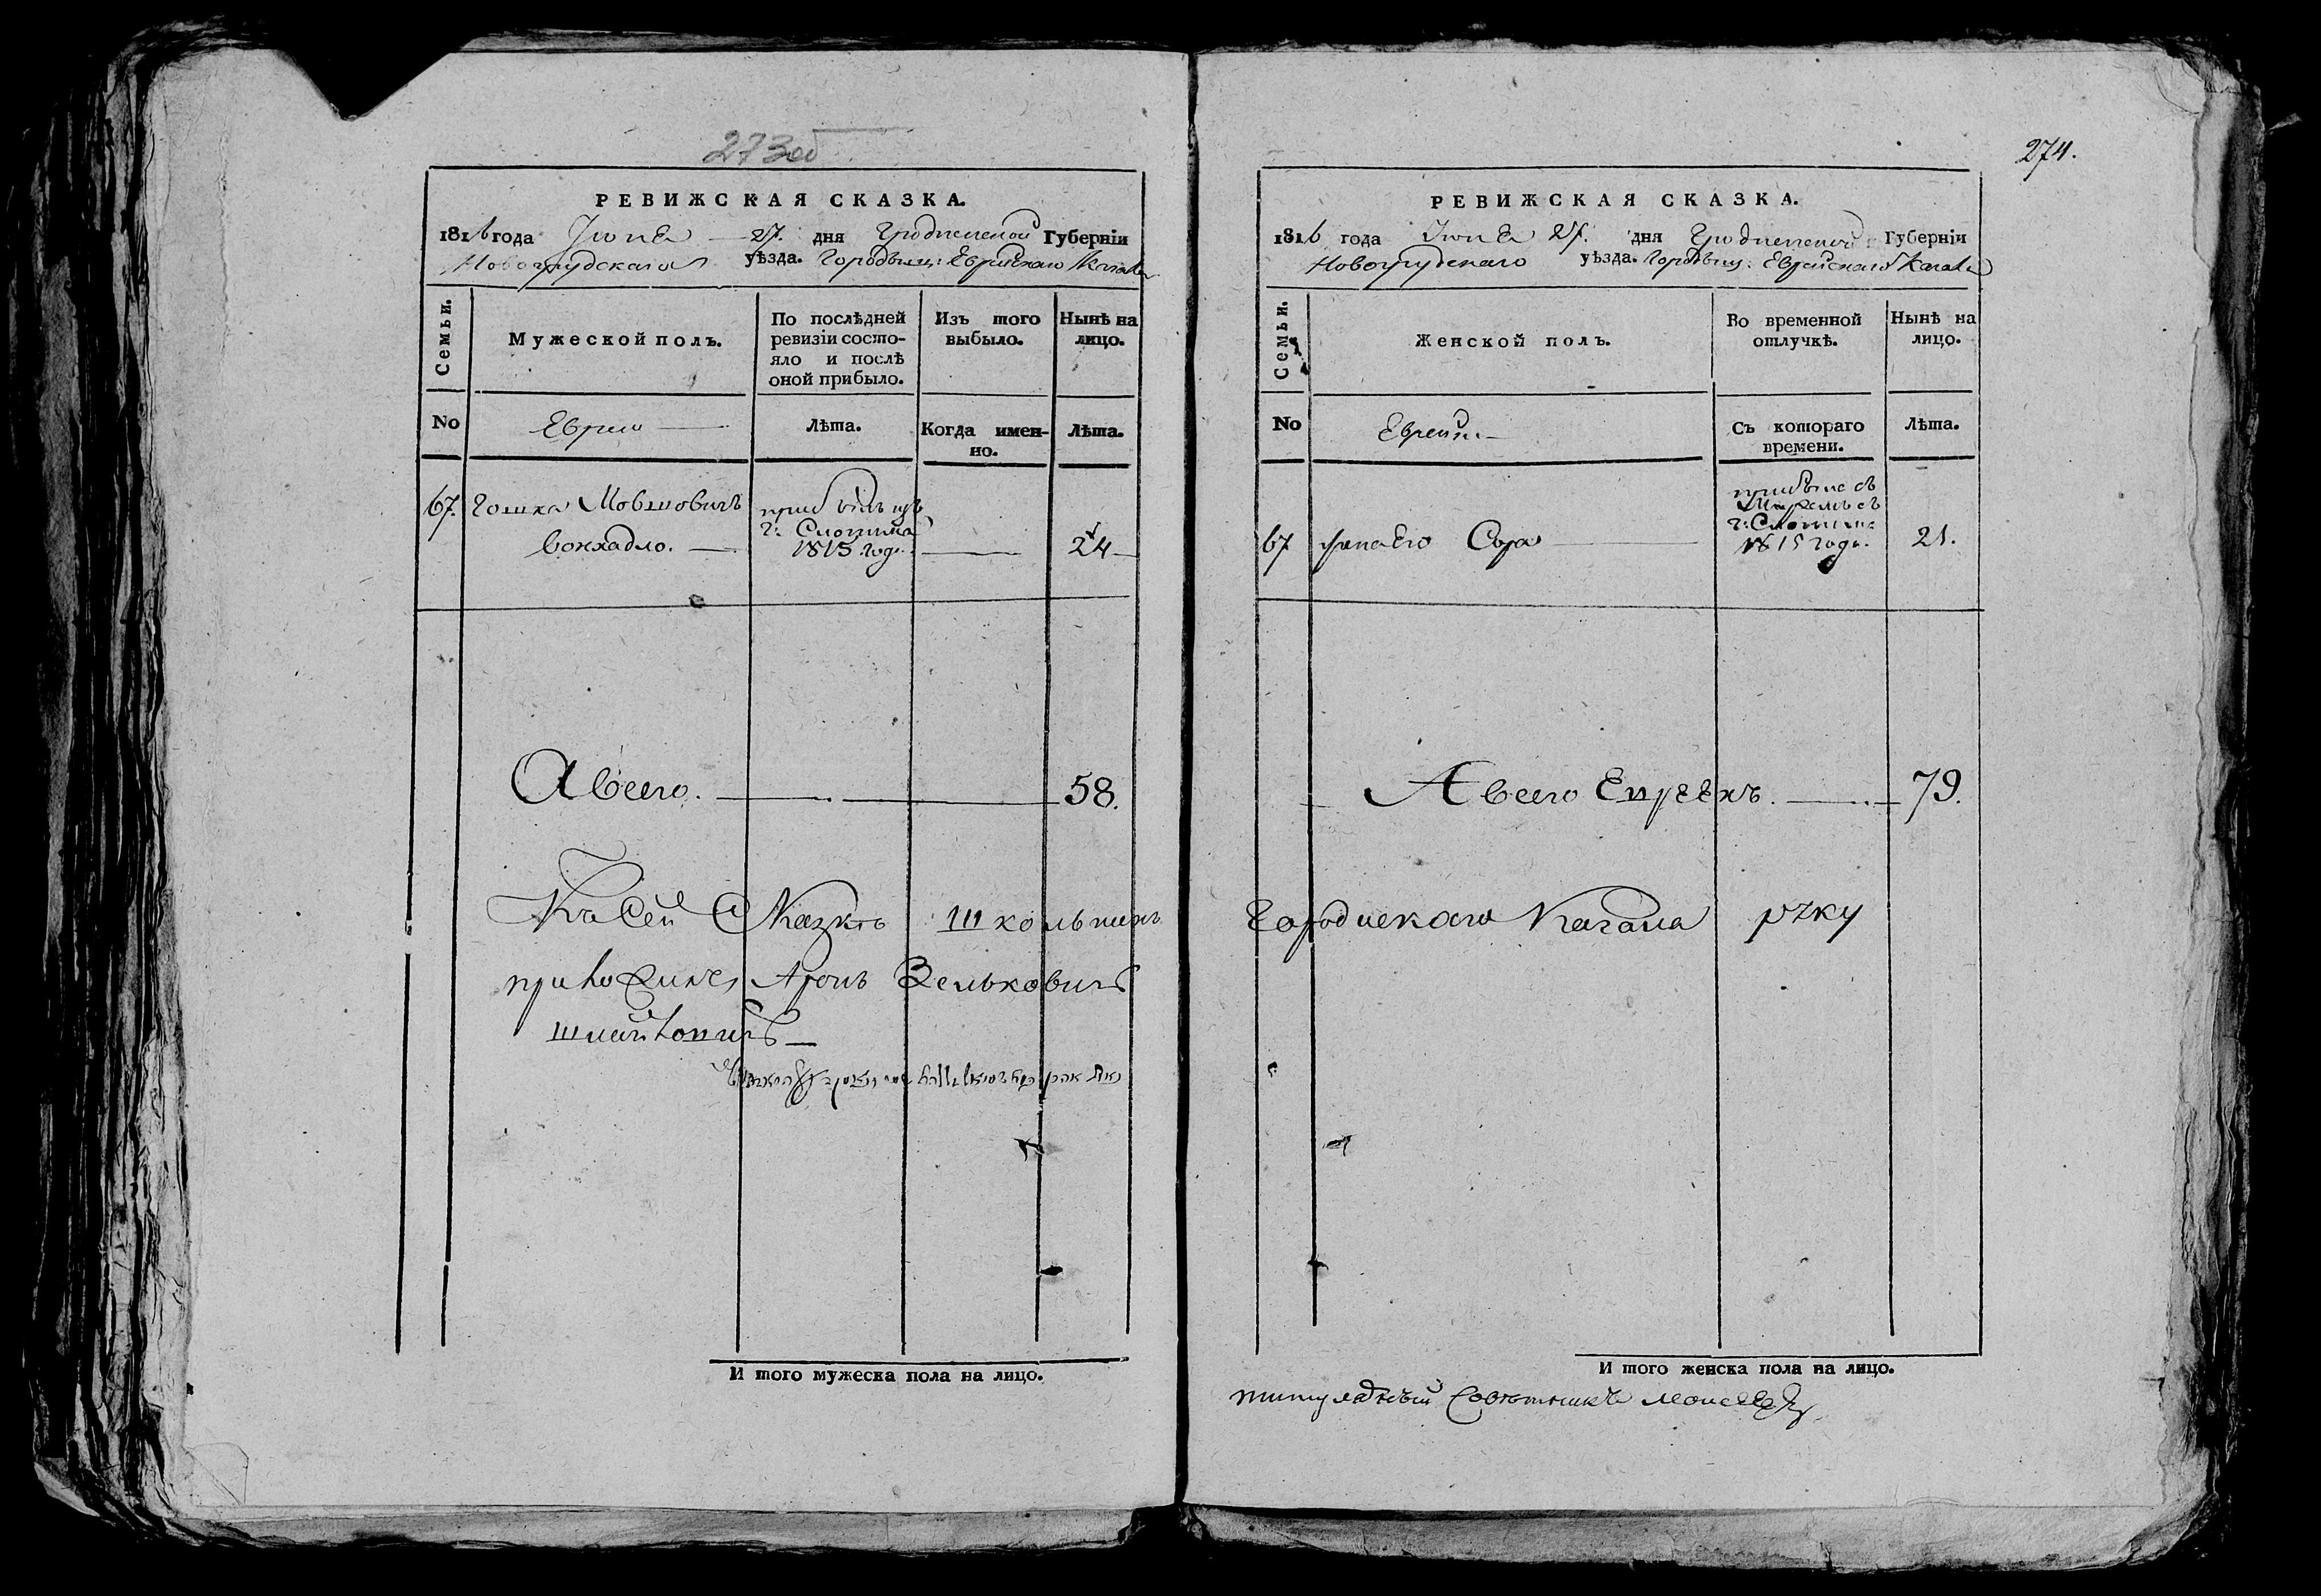 273об
РЕВИЖСКАЯ СКАЗКА.
1816 года Іюня 27. дня Гродненской Губерніи
Новогрудскаго уѣзда. Городыщ: Еврейскаго Кагала
Семьи.
Мужеской полъ.
По послѣдней ревизіи состояло и послѣ оной прибыло.
Изъ того выбыло.
Нынѣ на лицо.
No
Евреи
Лѣта.
Когда именно.
Лѣта.
67. Гошка Мовшовичъ
прибылъ изъ
г: Слонима
1815 года
24
А всего. 58.
Къ Сей Сказкѣ школьникъ
Аронъ Зельковичъ
И того мужеска пола на лицо.
274.
РЕВИЖСКАЯ СКАЗКА.
1816 года Іюня 27. дня Гродненской Губерніи
Новогрудскаго уѣзда. Городыщ: Еврейскаго Кагала
Семьи.
Женской полъ.
Во временной отлучкѣ.
Нынѣ на лицо.
No
Еврейки
Съ котораго времени.
Лѣта.
67 Жена Его Сора
прибыла съ
мужемъ съ
г: Слонима
1815 года.
21.
А всего Евреекъ. 79.
Кагала руку
И того женска пола на лицо.
титулярный Совѣтникъ